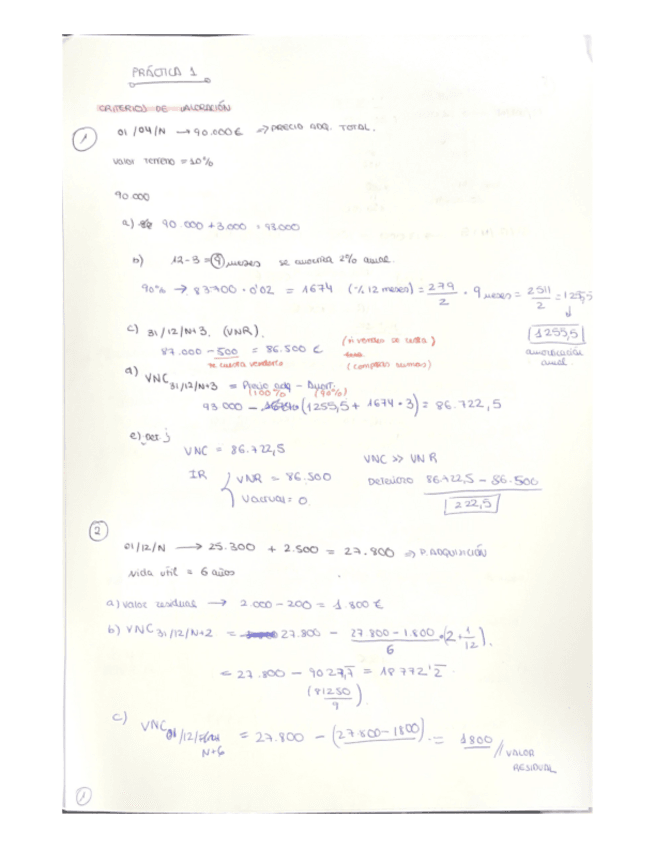 PRÁCTICA 1
CRITERIOS DE VALORACIÓN
1
01/04/N → 90.000€ => PRECIO ADQ. TOTAL.
Valor terreno = 10%
90.000
a) 90.000 + 3.000 = 93.000
b) 12-3 = 9 meses se amortiza 2% anual.
90% → 83700 · 0'02 = 1674 (% 12 meses) = 279/2 · 9 meses = 2511/2 = 1255,5
1255,5
amortización anual
c) 31/12/N+3. (VNR).
87.000 - 500 = 86.500 €
se cuesta venderlo
(si vendes se resta)
(compras sumas)
d) VNC 31/12/N+3 = Precio adq - Amort.
(100%) (90%)
93.000 - (1255,5 + 1674 · 3) = 86.722,5
e) Det. j
VNC = 86.722,5
VNC >> VNR
IR { VNR = 86.500
Vactual = 0
Deterioro 86.722,5 - 86.500
222,5
2
01/12/N → 25.300 + 2.500 = 27.800 => P. ADQUISICIÓN
Vida útil = 6 años
a) valor residual → 2.000 - 200 = 1.800 €
b) VNC 31/12/N+2 = 27.800 - 27.800 - 1.800/6 · (2 + 1/12).
= 27.800 - 9027,7 = 18772'2
(81250/9)
c) VNC 01/12/N+6 = 27.800 - (27.800 - 1800) = 1800 // VALOR RESIDUAL
1